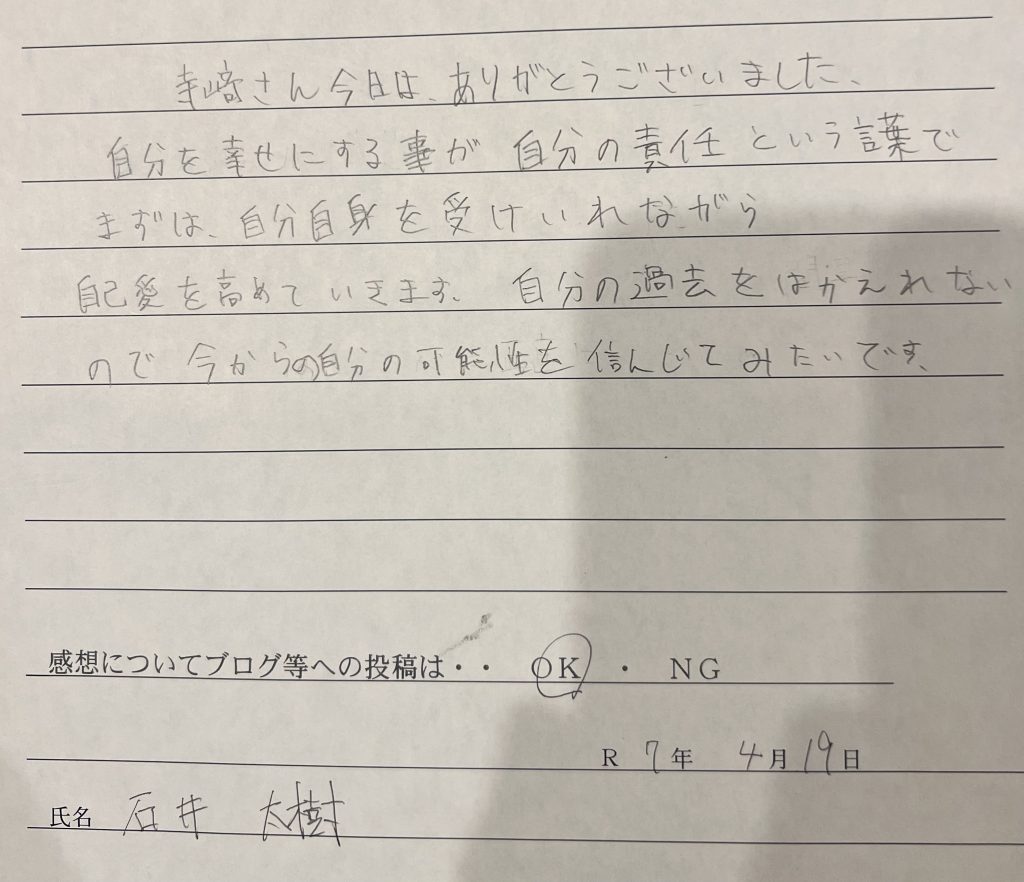 寺﨑さん今日は、ありがとうございました、
自分を幸せにする事が 自分の責任という言葉で
まずは、自分自身を受けいれながら
自己愛を高めていきます、 自分の過去をはかえれない
ので 今からの自分の可能性を信んじてみたいです、
感想についてブログ等への投稿は・・ OK ・ NG
R 7年 4月19日
氏名 石井 太樹